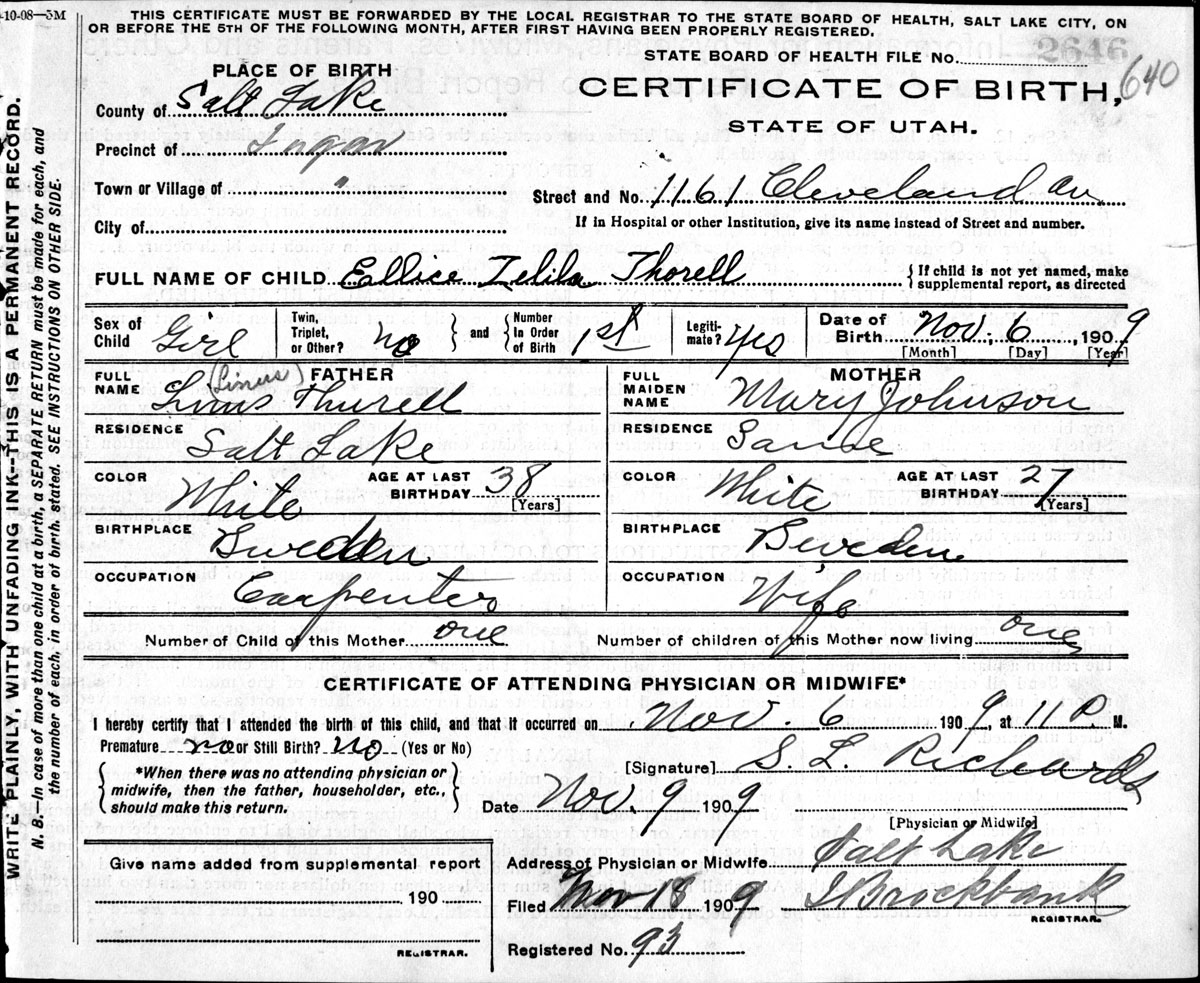 -10-08—5M
THIS CERTIFICATE MUST BE FORWARDED BY THE LOCAL REGISTRAR TO THE STATE BOARD OF HEALTH, SALT LAKE CITY, ON
OR BEFORE THE 5TH OF THE FOLLOWING MONTH, AFTER FIRST HAVING BEEN PROPERLY REGISTERED.
STATE BOARD OF HEALTH FILE No. 2646
640
CERTIFICATE OF BIRTH,
STATE OF UTAH.
PLACE OF BIRTH
County of Salt Lake
Precinct of Sugar
Town or Village of "
City of
Street and No. 1161 Cleveland av
If in Hospital or other Institution, give its name instead of Street and number.
FULL NAME OF CHILD Ellice Thorell
If child is not yet named, make
supplemental report, as directed
Sex of Child Girl
Twin, Triplet, or Other? no
and Number In Order of Birth 1st
Legitimate? yes
Date of Birth Nov. 6, 1909
[Month] [Day] [Year]
FATHER
FULL NAME (Linus)
Linus Thurell
RESIDENCE
Salt Lake
COLOR White
AGE AT LAST BIRTHDAY 38
[Years]
BIRTHPLACE
Sweden
OCCUPATION
Carpenter
MOTHER
FULL MAIDEN NAME
Mary Johnson
RESIDENCE
Same
COLOR White
AGE AT LAST BIRTHDAY 27
[Years]
BIRTHPLACE
Sweden
OCCUPATION
Wife
Number of Child of this Mother one
Number of children of this Mother now living one
CERTIFICATE OF ATTENDING PHYSICIAN OR MIDWIFE*
I hereby certify that I attended the birth of this child, and that it occurred on Nov. 6 1909 at 11 P M.
Premature no or Still Birth? no (Yes or No)
*When there was no attending physician or
midwife, then the father, householder, etc.,
should make this return.
[Signature] S. L. Richards
Date Nov. 9 1909
[Physician or Midwife]
Give name added from supplemental report
190
REGISTRAR.
Address of Physician or Midwife Salt Lake
Filed Nov 18 1909 Brockbank
REGISTRAR.
Registered No. 93
WRITE PLAINLY, WITH UNFADING INK—THIS IS A PERMANENT RECORD.
N. B.—In case of more than one child at a birth, a SEPARATE RETURN must be made for each, and
the number of each, in order of birth, stated. SEE INSTRUCTIONS ON OTHER SIDE.